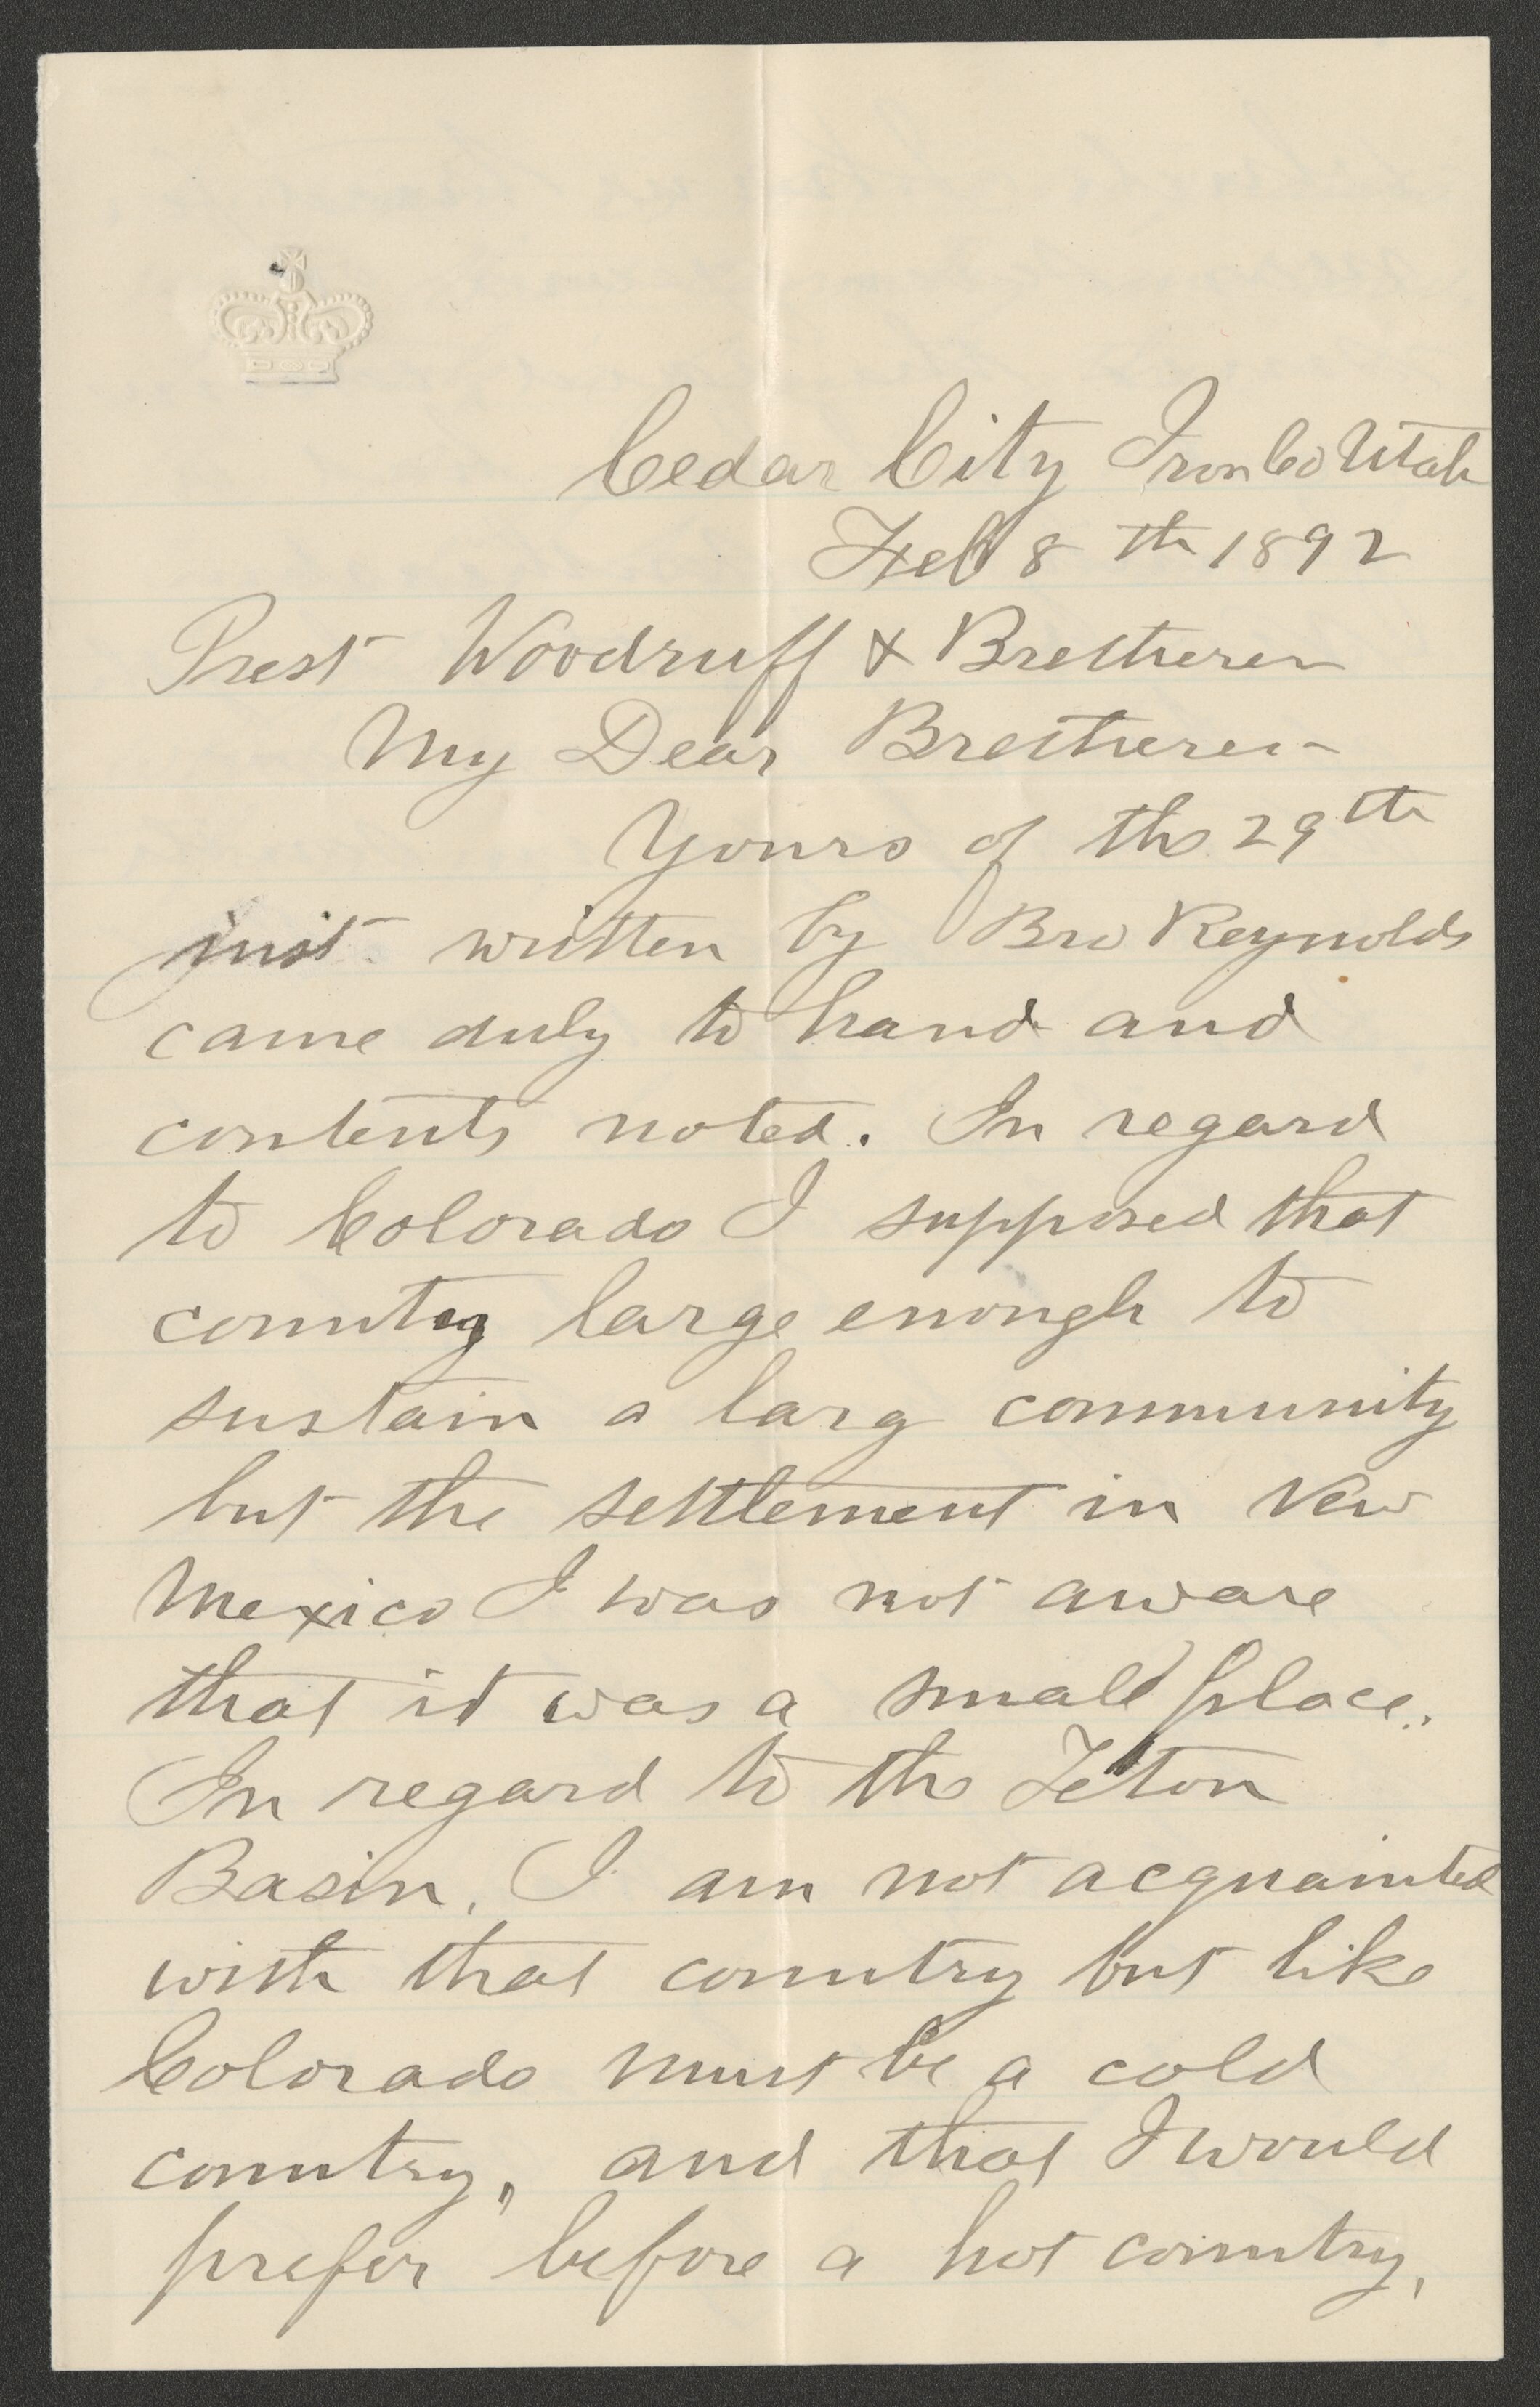 Cedar City Iron Co Utah
Feb 8th 1892
Prest Woodruff & Bretheren
My Dear Bretheren
Yours of the 29th
inst written by Bro Reynolds
came duly to hand and
contents noted. In regard
to Colorado I supposed that
country large enough to
sustain a larg community
but the settlement in New
Mexico I was not aware
that it was a small place.
In regard to the Teton
Basin, I am not acquainted
with that country but like
Colorado must be a cold
country, and that I would
prefer before a hot country,